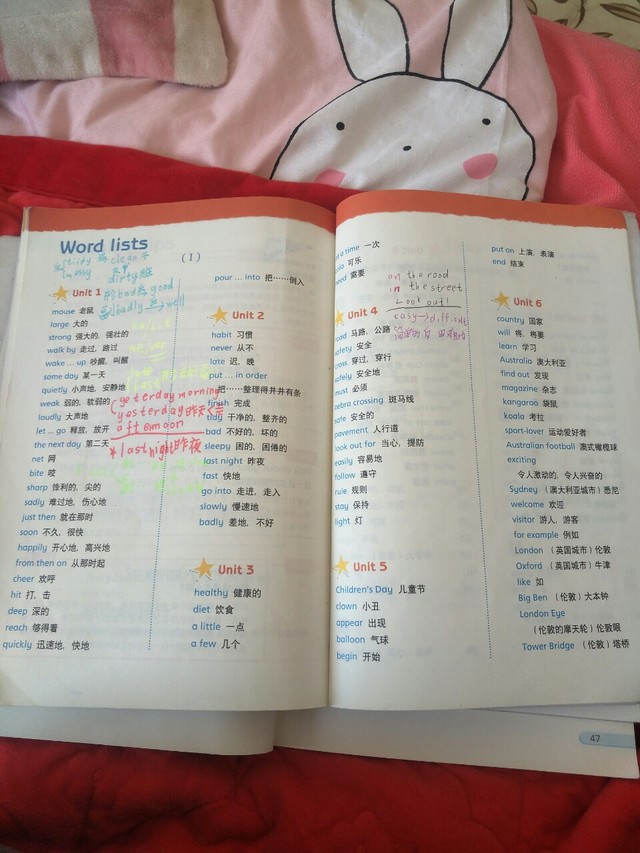 Word lists
( I )
Unit 1
mouse 老鼠
large 大的
strong 强大的，强壮的
walk by 走过，路过
wake ... up 吵醒，叫醒
some day 某一天
quietly 小声地，安静地
weak 弱的，软弱的
loudly 大声地
let ... go 释放，放开
the next day 第二天
net 网
bite 咬
sharp 锋利的，尖的
sadly 难过地，伤心地
just then 就在那时
soon 不久，很快
happily 开心地，高兴地
from then on 从那时起
cheer 欢呼
hit 打，击
deep 深的
reach 够得着
quickly 迅速地，快地
clean
dirty 脏
bad good
badly well
yesterday morning
yesterday 昨天
afternoon
* last night 昨夜
pour ... into 把……倒入
Unit 2
habit 习惯
never 从不
late 迟，晚
put ... in order
把……整理得井井有条
finish 完成
tidy 干净的，整齐的
bad 不好的，坏的
sleepy 困的，困倦的
last night 昨夜
fast 快地
go into 走进，走入
slowly 慢速地
badly 差地，不好
Unit 3
healthy 健康的
diet 饮食
a little 一点
a few 几个
time 一次
可乐
需要
on the road
in the street
Look out!
easy → difficult
Unit 4
road 马路，公路
safety 安全
cross 穿过，穿行
safely 安全地
must 必须
zebra crossing 斑马线
safe 安全的
pavement 人行道
look out for 当心，提防
easily 容易地
follow 遵守
rule 规则
stay 保持
light 灯
Unit 5
Children's Day 儿童节
clown 小丑
appear 出现
balloon 气球
begin 开始
put on 上演，表演
end 结束
Unit 6
country 国家
will 将，将要
learn 学习
Australia 澳大利亚
find out 发现
magazine 杂志
kangaroo 袋鼠
koala 考拉
sport-lover 运动爱好者
Australian football 澳式橄榄球
exciting
令人激动的，令人兴奋的
Sydney （澳大利亚城市）悉尼
welcome 欢迎
visitor 游人，游客
for example 例如
London （英国城市）伦敦
Oxford （英国城市）牛津
like 如
Big Ben （伦敦）大本钟
London Eye
（伦敦的摩天轮）伦敦眼
Tower Bridge （伦敦）塔桥
47